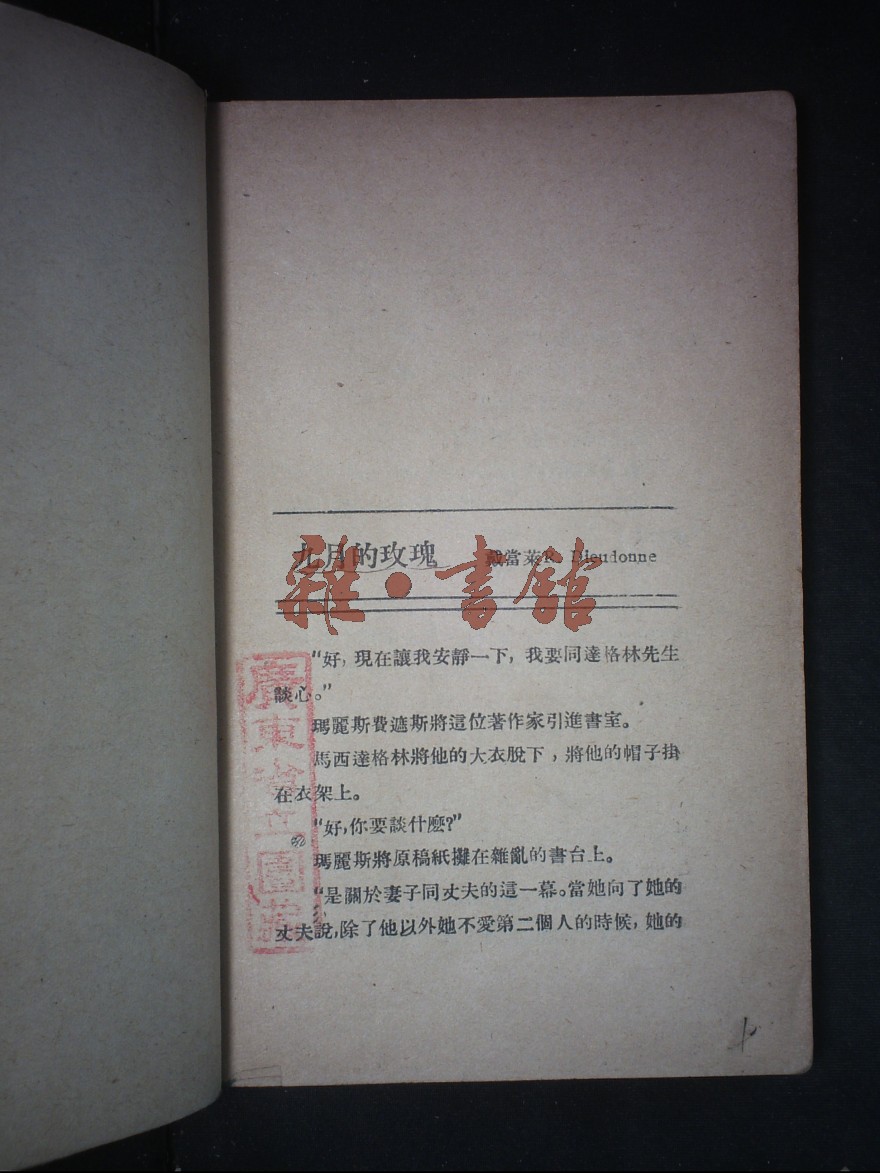 九月的玫瑰 戴當萊R. Dieudonne
雜·書館
"好, 現在讓我安靜一下, 我要同達格林先生
談心。"
瑪麗斯費遮斯將這位著作家引進書室。
馬西達格林將他的大衣脫下,將他的帽子掛
在衣架上。
"好,你要談什麽?"
瑪麗斯將原稿紙攤在雜亂的書台上。
"是關於妻子同丈夫的這一幕。當她向了她的
丈夫說,除了他以外她不愛第二個人的時候, 她的
廣東省立圖